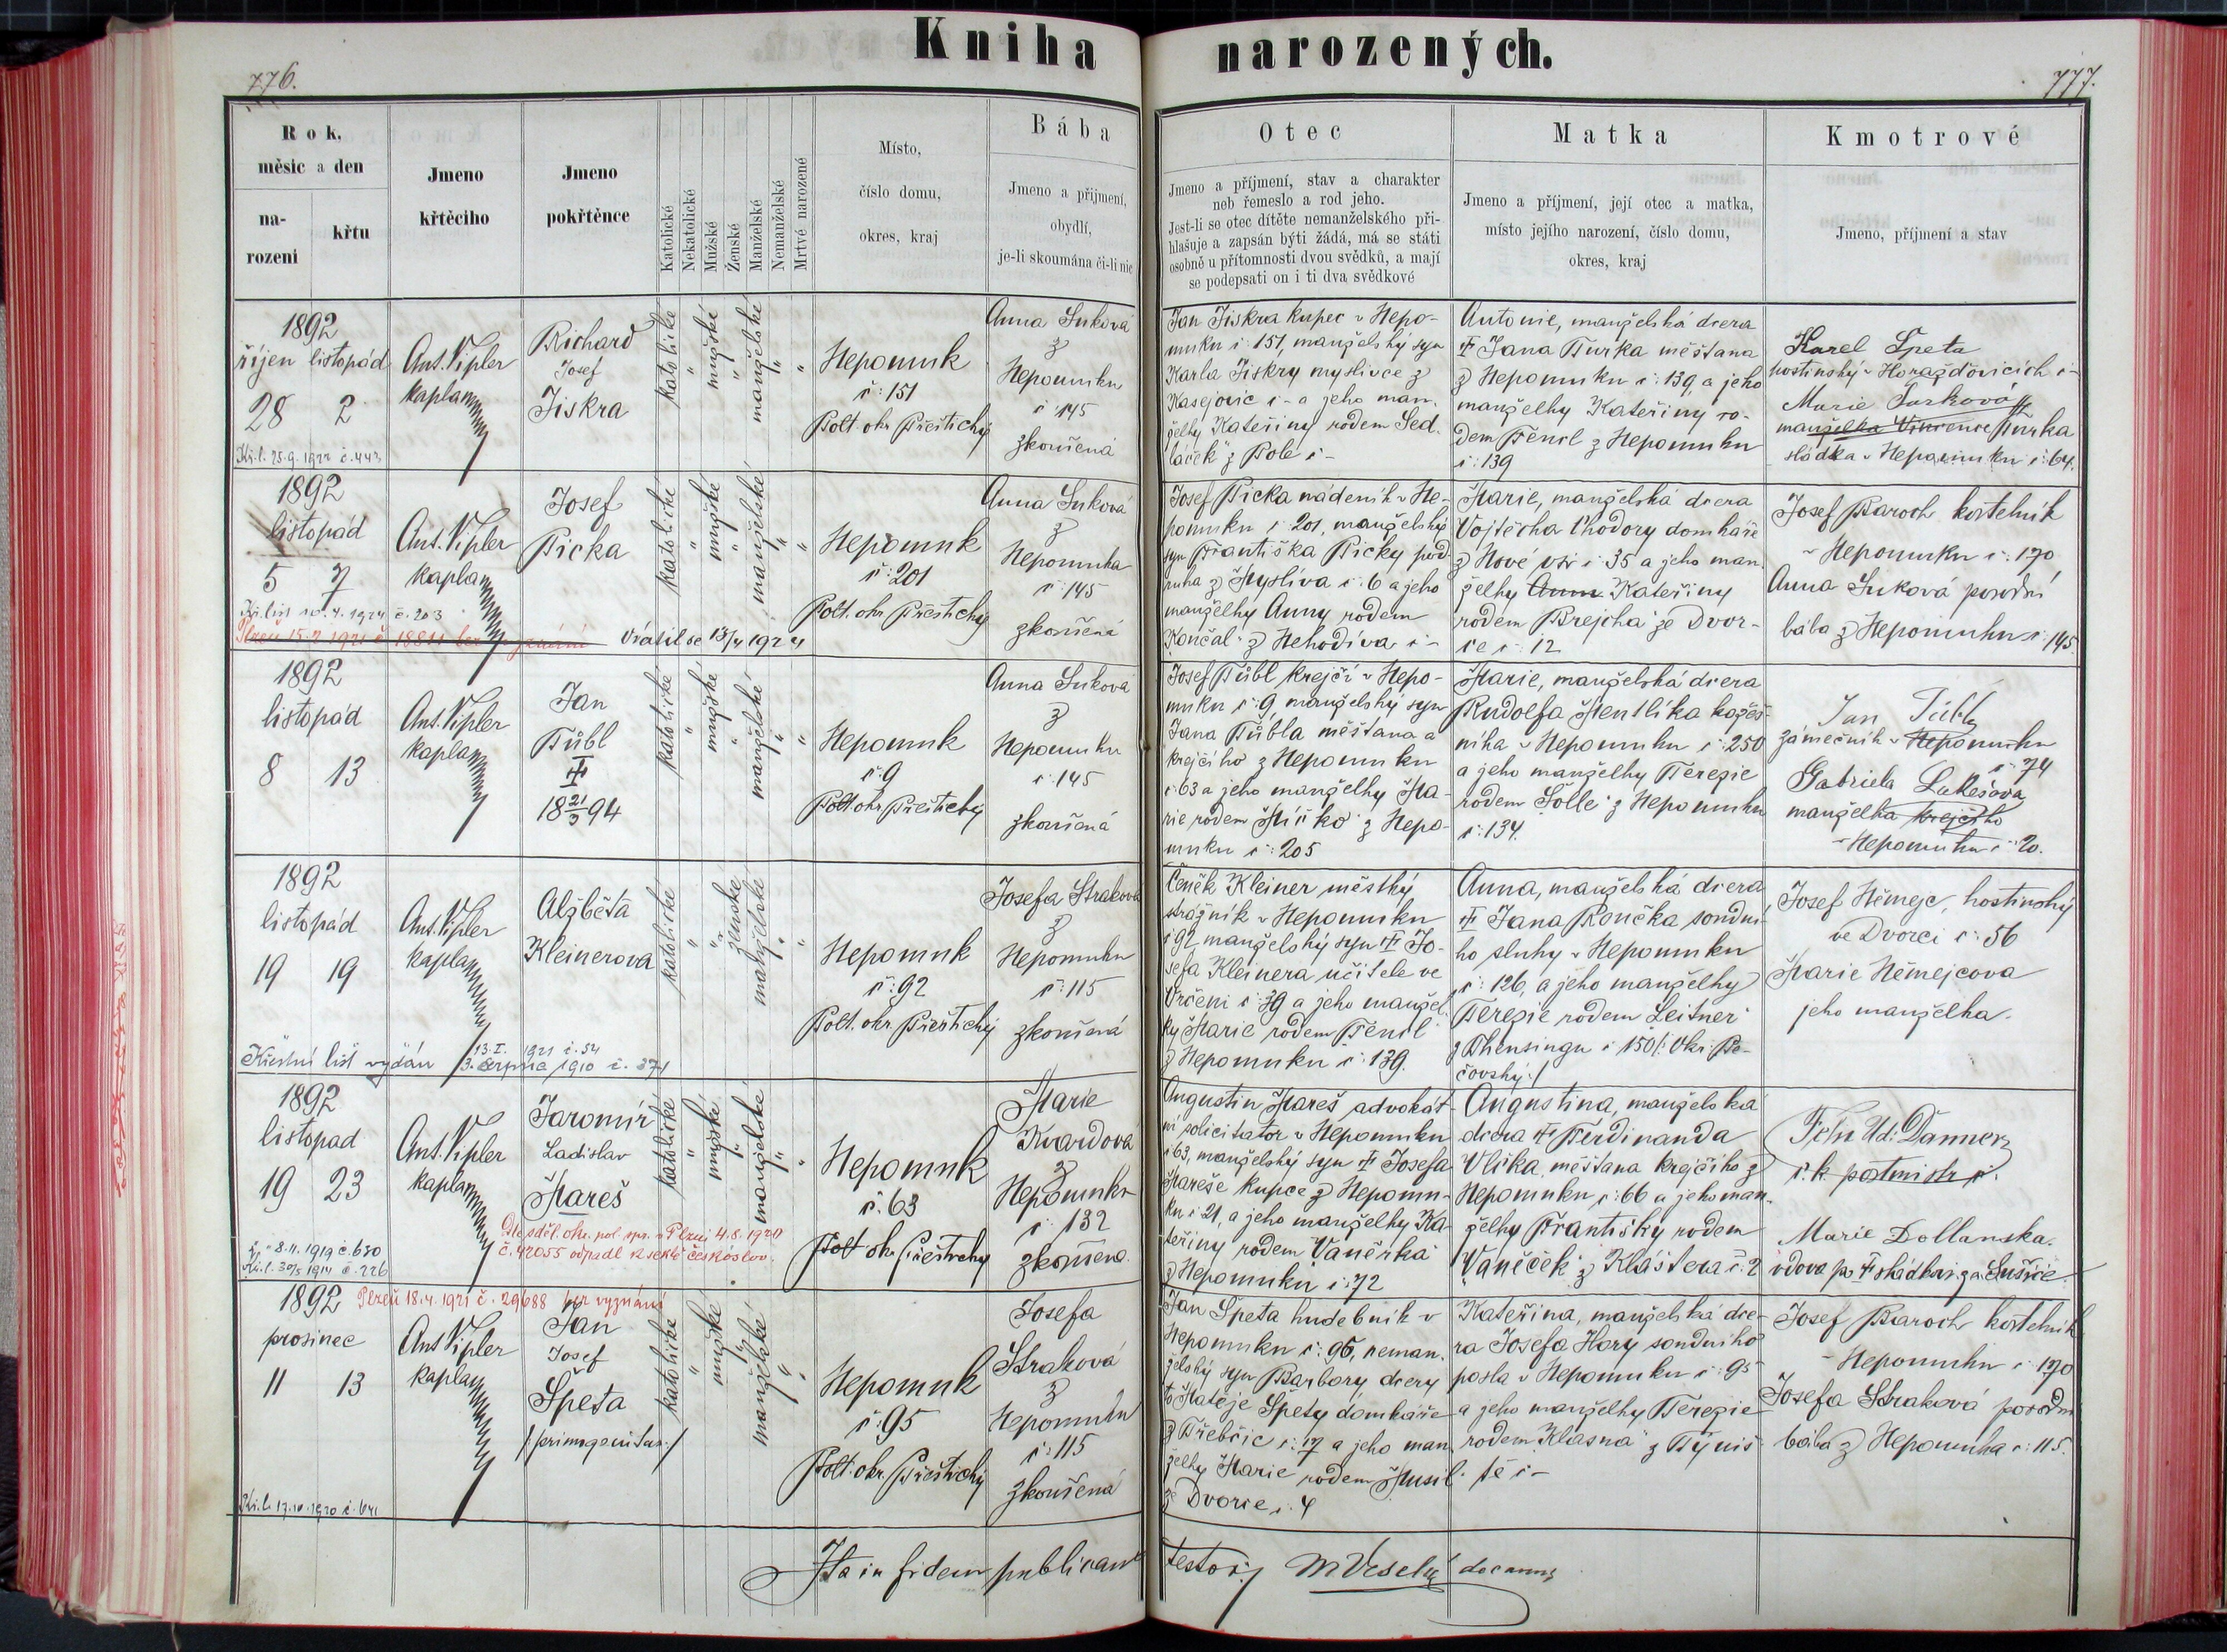 Kniha narozených.
776.
777.
Rok,
měsic a den
na-
rozeni
křtu
Jmeno
křtěciho
Jmeno
pokřtěnce
Katolické
Nekatolické
Mužské
Ženské
Manželské
Nemanželské
Mrtvé narozené
Místo,
číslo domu,
okres, kraj
Bába
Jmeno a přijmení,
obydlí,
je-li skoumána či-li nic
Otec
Jmeno a příjmení, stav a charakter
neb řemeslo a rod jeho.
Jest-li se otec dítěte nemanželského při-
hlašuje a zapsán býti žádá, má se státi
osobně u přítomnosti dvou svědků, a mají
se podepsati on i ti dva svědkové
Matka
Jmeno a příjmení, její otec a matka,
místo jejího narození, číslo domu,
okres, kraj
Kmotrové
Jmeno, příjmení a stav
1892
říjen listopád
28 2
Kř.l. 25.9.1922 č.443
Ant. Vipler
kaplan
Richard
Josef
Jiskra
katolické
"
mužské
"
manželské
"
"
Nepomuk
č: 151
Polt. okr. Přeštický
Anna Suková
z
Nepomuku
č 145
zkoušená
Jan Jiskra kupec v Nepo-
muku č: 151, manželský syn
Karla Jiskry myslivce z
Kasejovic č - a jeho man-
želky Kateřiny rodem Sed-
láček z Pole č -
Antonie, manželská dcera
† Jana Turka měšťana
z Nepomuku č: 139, a jeho
manželky Kateřiny ro-
dem Fencl z Nepomuku
č: 139
Karel Špeta
hostinský v Horažďovicích č -
Marie Turková
manželka Vincence Turka
sládka v Nepomuku č: 64.
1892
listopád
5 7
Kř. list 10.4.1924 č. 203
Plzeň 15.2 1921 č 18811 bez vyznání Vrátil se 13/4 1924
Ant. Vipler
kaplan
Josef
Picka
katolické
"
mužské
"
manželské
"
"
Nepomuk
č: 201
Polt. okr. Přeštický
Anna Suková
z
Nepomuka
č: 145
zkoušená
Josef Picka nádeník v Ne-
pomuku č 201, manželský
syn Františka Picky pod-
ruha z Myslíva č: 6 a jeho
manželky Anny rodem
Končal z Nehodíva č -
Marie, manželská dcera
Vojtěcha Chodory domkáře
z Nové vsi č 35 a jeho man-
želky Anny Kateřiny
rodem Brejcha ze Dvor-
ce č: 12
Josef Baroch kostelník
v Nepomuku č: 170
Anna Suková porodní
bába z Nepomuku č: 145.
1892
listopád
8 13
Ant. Vipler
kaplan
Jan
Tübl
†
18 21/3 94
katolické
"
mužské
"
manželské
"
"
Nepomuk
č: 9
Polt. okr. Přeštický
Anna Suková
z
Nepomuku
č: 145
zkoušená
Josef Tübl krejčí v Nepo-
muku č: 9, manželský syn
Jana Tübla měšťana a
krejčího z Nepomuku
č: 63 a jeho manželky Ma-
rie rodem Míčko z Nepo-
muku č: 205
Marie, manželská dcera
Rudolfa Mentlíka kožeš-
níka v Nepomuku č: 250
a jeho manželky Terezie
rodem Solle z Nepomuku
č: 134.
Jan Tübl
zámečník v Nepomuku
č: 74
Gabriela Lukešova
manželka krejčího
v Nepomuku č: 20.
1892
listopád
19 19
Křestní list vydán 3. srpna 1910 č. 371
13.I. 1921 č. 54
Ant. Vipler
kaplan
Alžběta
Kleinerova
katolické
"
"
ženské
manželské
"
"
Nepomuk
č: 92
Polt. okr. Přeštický
Josefa Straková
z
Nepomuku
č: 115
zkoušená
Čeněk Kleiner městký
strážník v Nepomuku
č 92 manželský syn † Jo-
sefa Kleinera učitele ve
Vrčeni č 39 a jeho manžel-
ky Marie rodem Fencl
z Nepomuku č: 139.
Anna, manželská dcera
† Jana Rončka soudní-
ho sluhy v Nepomuku
č: 126, a jeho manželky
Terezie rodem Leitner
z Thensingu č 150 /: Okr: Be-
čovský:/
Josef Němejc, hostinský
ve Dvorci č: 56
Marie Němejcova
jeho manželka.
1892
listopad
19 23
8.11.1919 č. 680
Kř.l. 30/5 1914 č. 226
Ant. Vipler
kaplan
Jaromír
Ladislav
Mareš
Dle sděl. okr. pol. spr. v Plzni 4.8.1920
č. 42055 odpadl k sektě českoslov.
katolické
"
mužské
"
manželské
"
"
Nepomuk
č. 63
Polt. okr. Přeštický
Marie
Kvardová
z
Nepomuku
č: 132
zkoušena.
Augustin Mareš advokát-
ní solicitator v Nepomuku
č 63, manželský syn † Josefa
Mareše kupce z Nepomu-
ku č 21, a jeho manželky Ka-
teřiny rodem Vaněrka
z Nepomuku č: 72
Augustina, manželská
dcera † Ferdinanda
Vlčka měšťana krejčího z
Nepomuku č: 66 a jeho man-
želky Františky rodem
Vaněček z Kláštera č: 2
Danner
c. k. poštmistr
Marie Dollanska.
vdova po † sládkovi za Sušice
1892 Plzeň 18.4.1921 č. 29688 bez vyznání
prosinec
11 13
Kř.l. 17.10.1920 č. 641
Ant. Vipler
kaplan
Jan
Josef
Špeta
/:primogenitus:/
katolické
"
mužské
"
manželské
"
"
Nepomuk
č: 95
Polt. okr. Přeštický
Josefa
Straková
z
Nepomuku
č: 115
zkoušená
Jan Špeta hudebník v
Nepomuku č: 95, neman-
želský syn Barbory dcery
to Matěje Špety domkáře
z Třebčic č: 17 a jeho man-
želky Marie rodem Musil
z Dvorce č. 4
Kateřina, manželská dce-
ra Josefa Hory soudního
posla v Nepomuku č: 95
a jeho manželky Terezie
rodem Klasna z Týniš-
tě č -
Josef Baroch kostelník
v Nepomuku č: 170
Josefa Straková porodní
bába z Nepomuka č: 115.
Ita in fidem publicam testor: M Veselý decanus